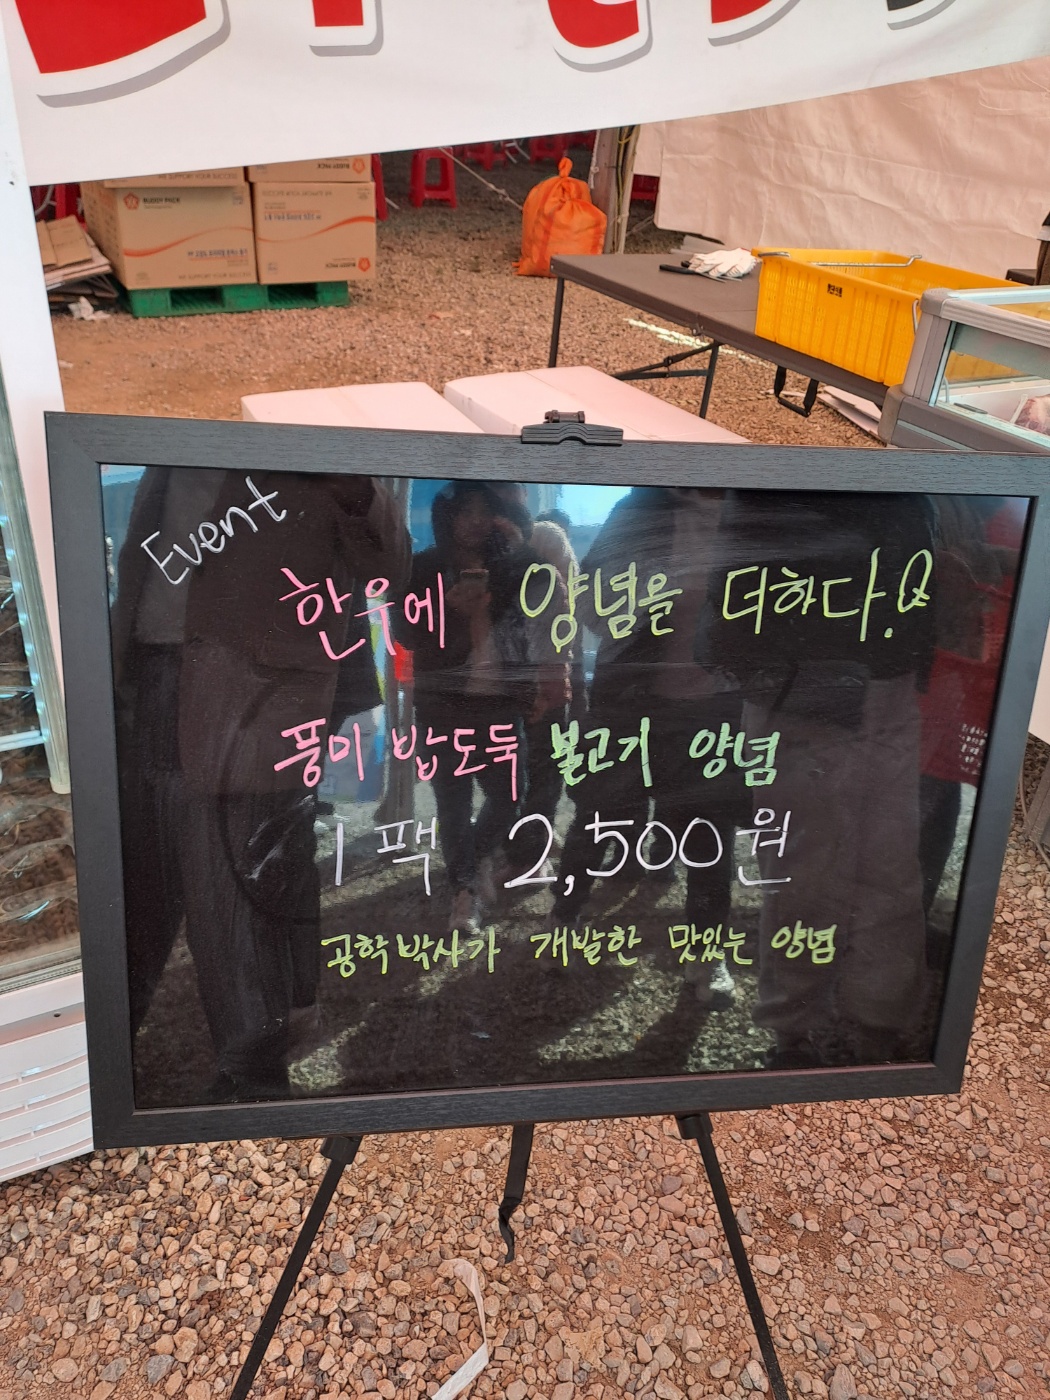 BUDDY PACK
Event
한우에 양념을 더하다!
풍미 밥도둑 불고기 양념
1팩 2,500원
공학박사가 개발한 맛있는 양념